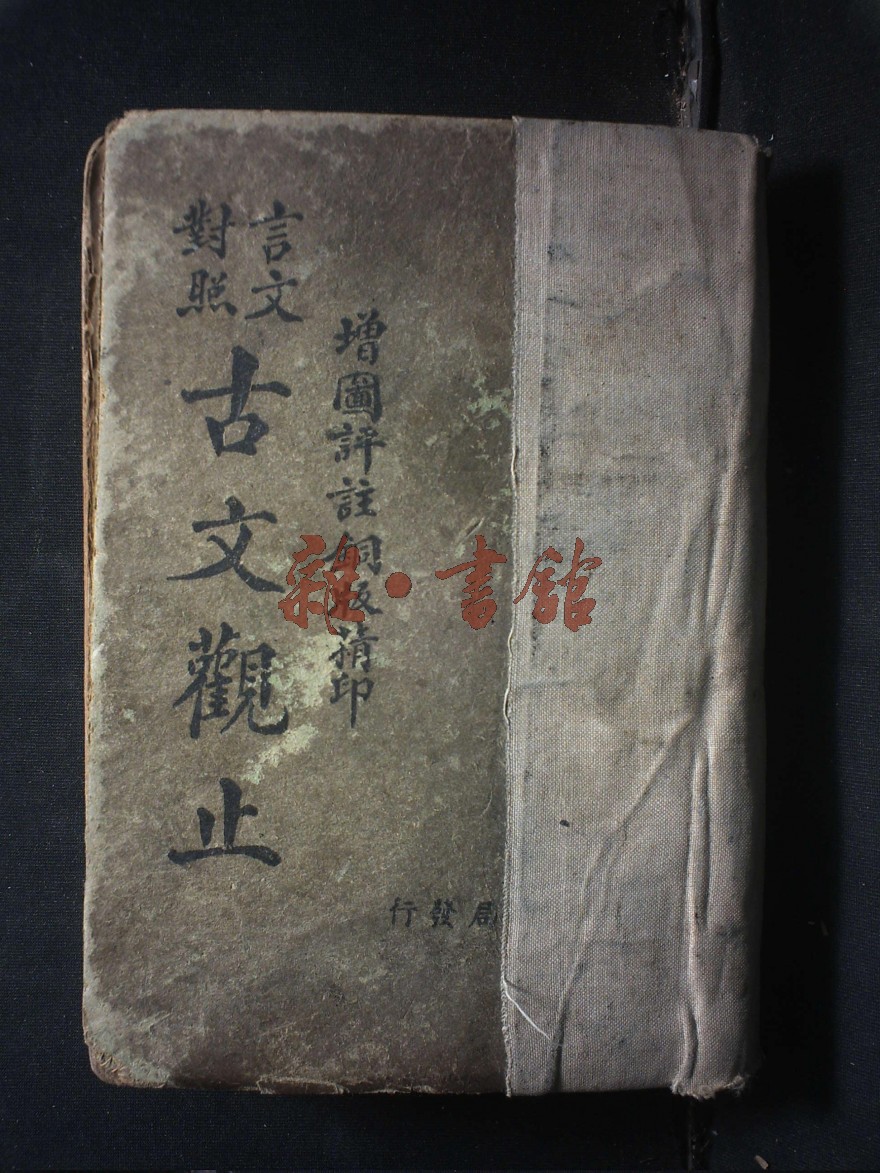 增圖評註銅版精印
言文
對照
古文觀止
局發行
雜·書館